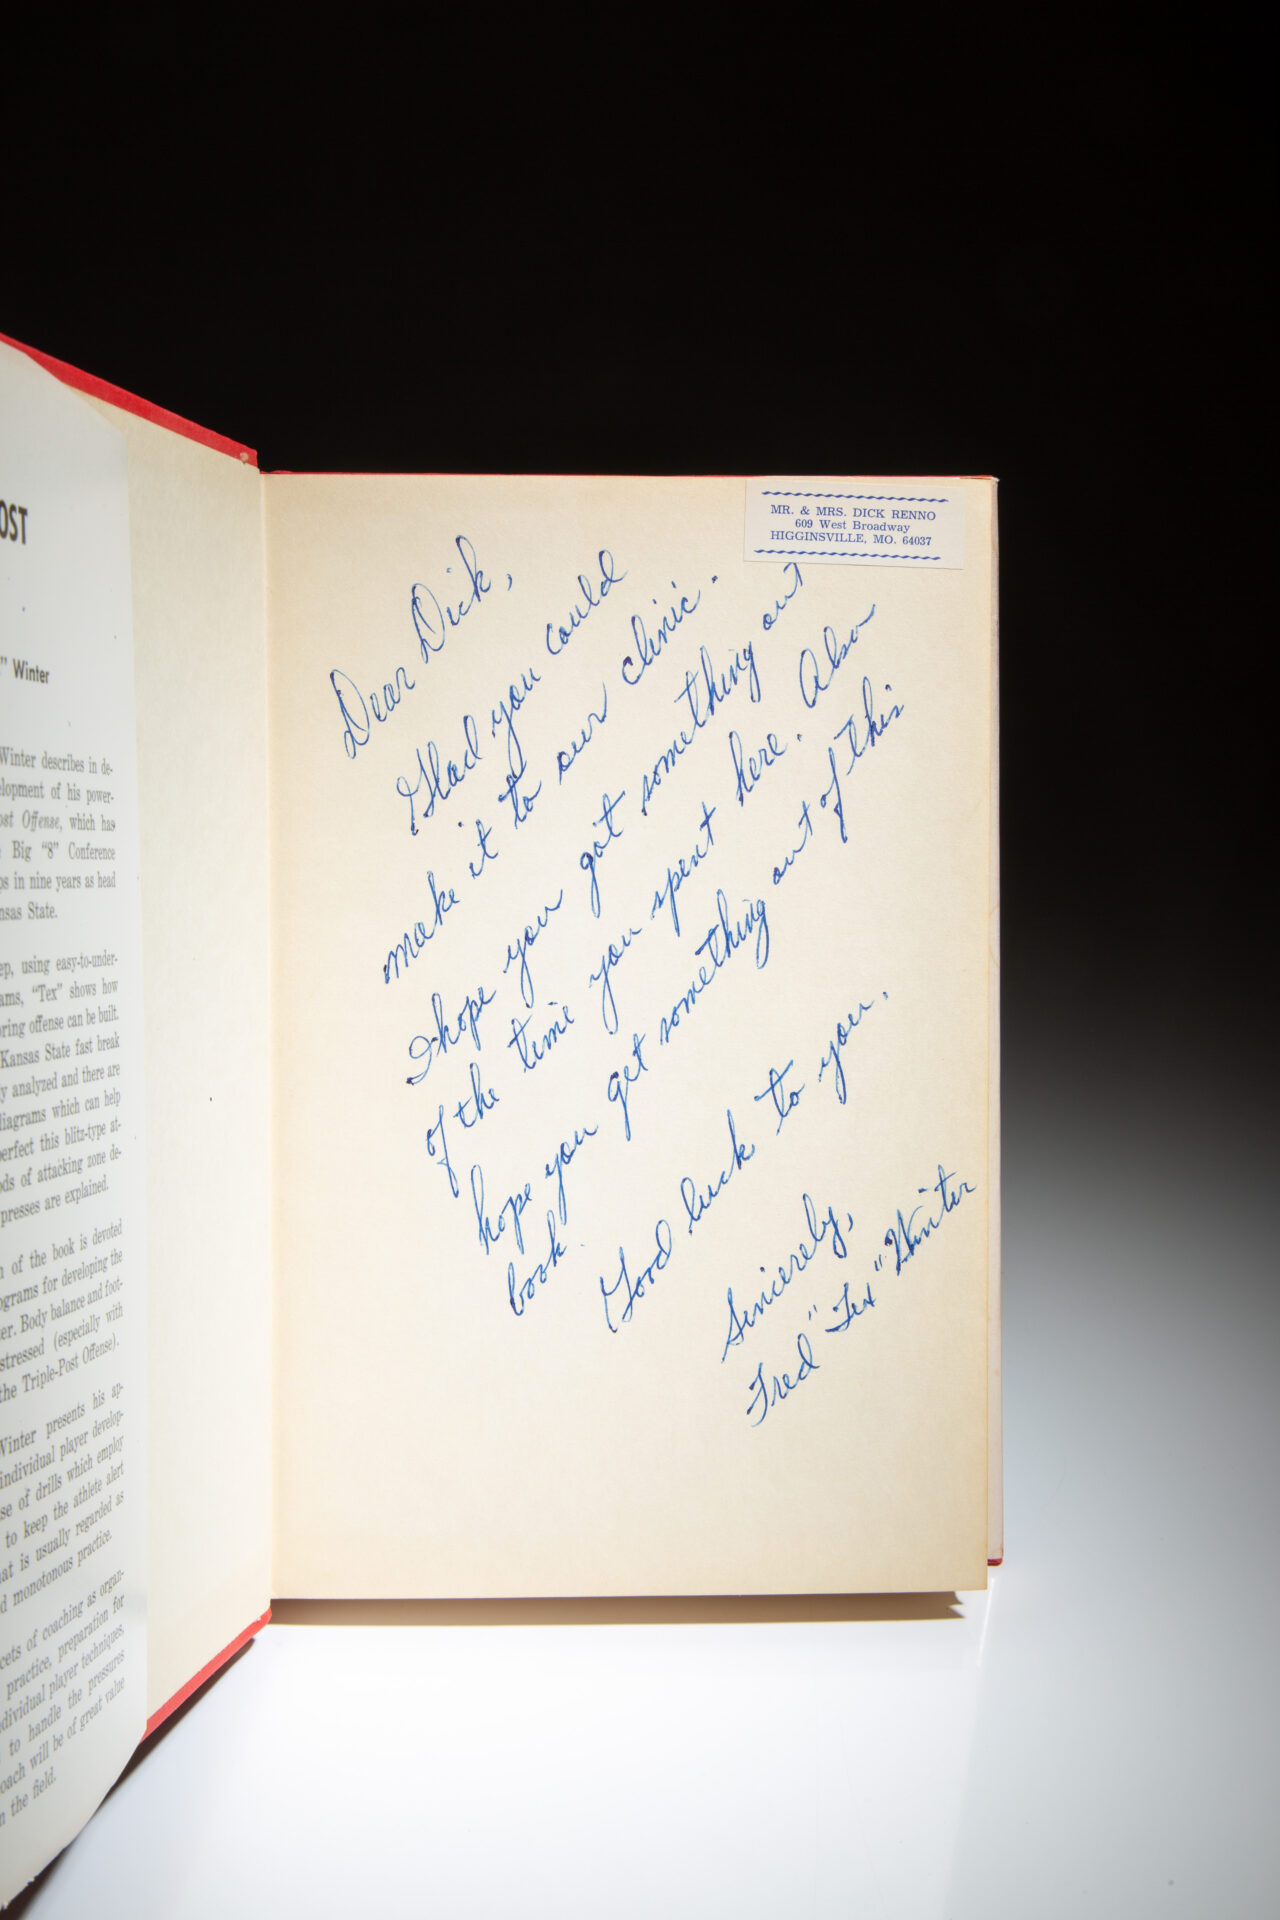 OST
" Winter
Winter describes in de-
elopment of his power-
ost Offense, which has
Big "8" Conference
ps in nine years as head
nsas State.
ep, using easy-to-under-
ams, "Tex" shows how
oring offense can be built.
Kansas State fast break
y analyzed and there are
diagrams which can help
perfect this blitz-type at-
ods of attacking zone de-
presses are explained.
n of the book is devoted
ograms for developing the
er. Body balance and foot-
stressed (especially with
the Triple-Post Offense).
Winter presents his ap-
individual player develop-
se of drills which employ
to keep the athlete alert
at is usually regarded as
d monotonous practice.
cets of coaching as organ-
practice, preparation for
dividual player techniques,
to handle the pressures
oach will be of great value
n the field.
MR. & MRS. DICK RENNO
609 West Broadway
HIGGINSVILLE, MO. 64037
Dear Dick,
Glad you could
make it to our clinic.
I hope you got something out
of the time you spent here. Also
hope you get something out of this
book.
Good luck to you.
Sincerely,
Fred "Tex" Winter